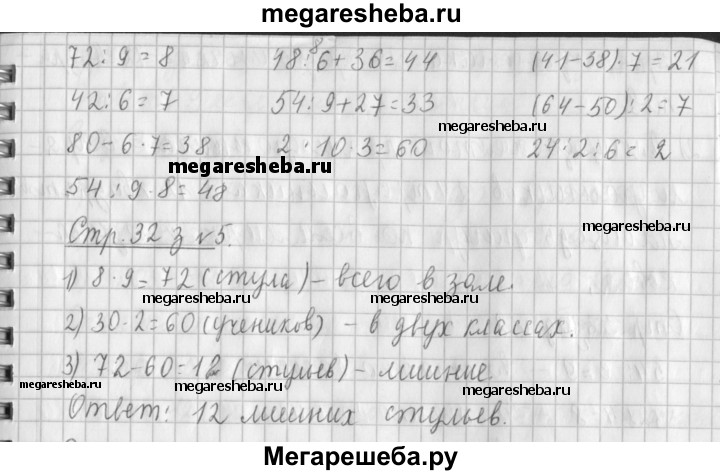 megaresheba.ru
72 : 9 = 8 48 : 6 + 36 = 44 (41 - 38) · 7 = 21
8
42 : 6 = 7 54 : 9 + 27 = 33 (64 - 50) : 2 = 7
megaresheba.ru
80 - 6 · 7 = 38 2 · 10 · 3 = 60 24 · 2 : 6 = 2
megaresheba.ru
54 : 9 · 8 = 48
megaresheba.ru megaresheba.ru
Стр. 32 з №5.
1) 8 · 9 = 72 (стула) - всего в зале.
megaresheba.ru megaresheba.ru
2) 30 · 2 = 60 (учеников) - в двух классах.
3) 72 - 60 = 12 (стульев) - лишние.
megaresheba.ru megaresheba.ru megaresheba.ru
Ответ: 12 лишних стульев.
Мегарешеба.ру